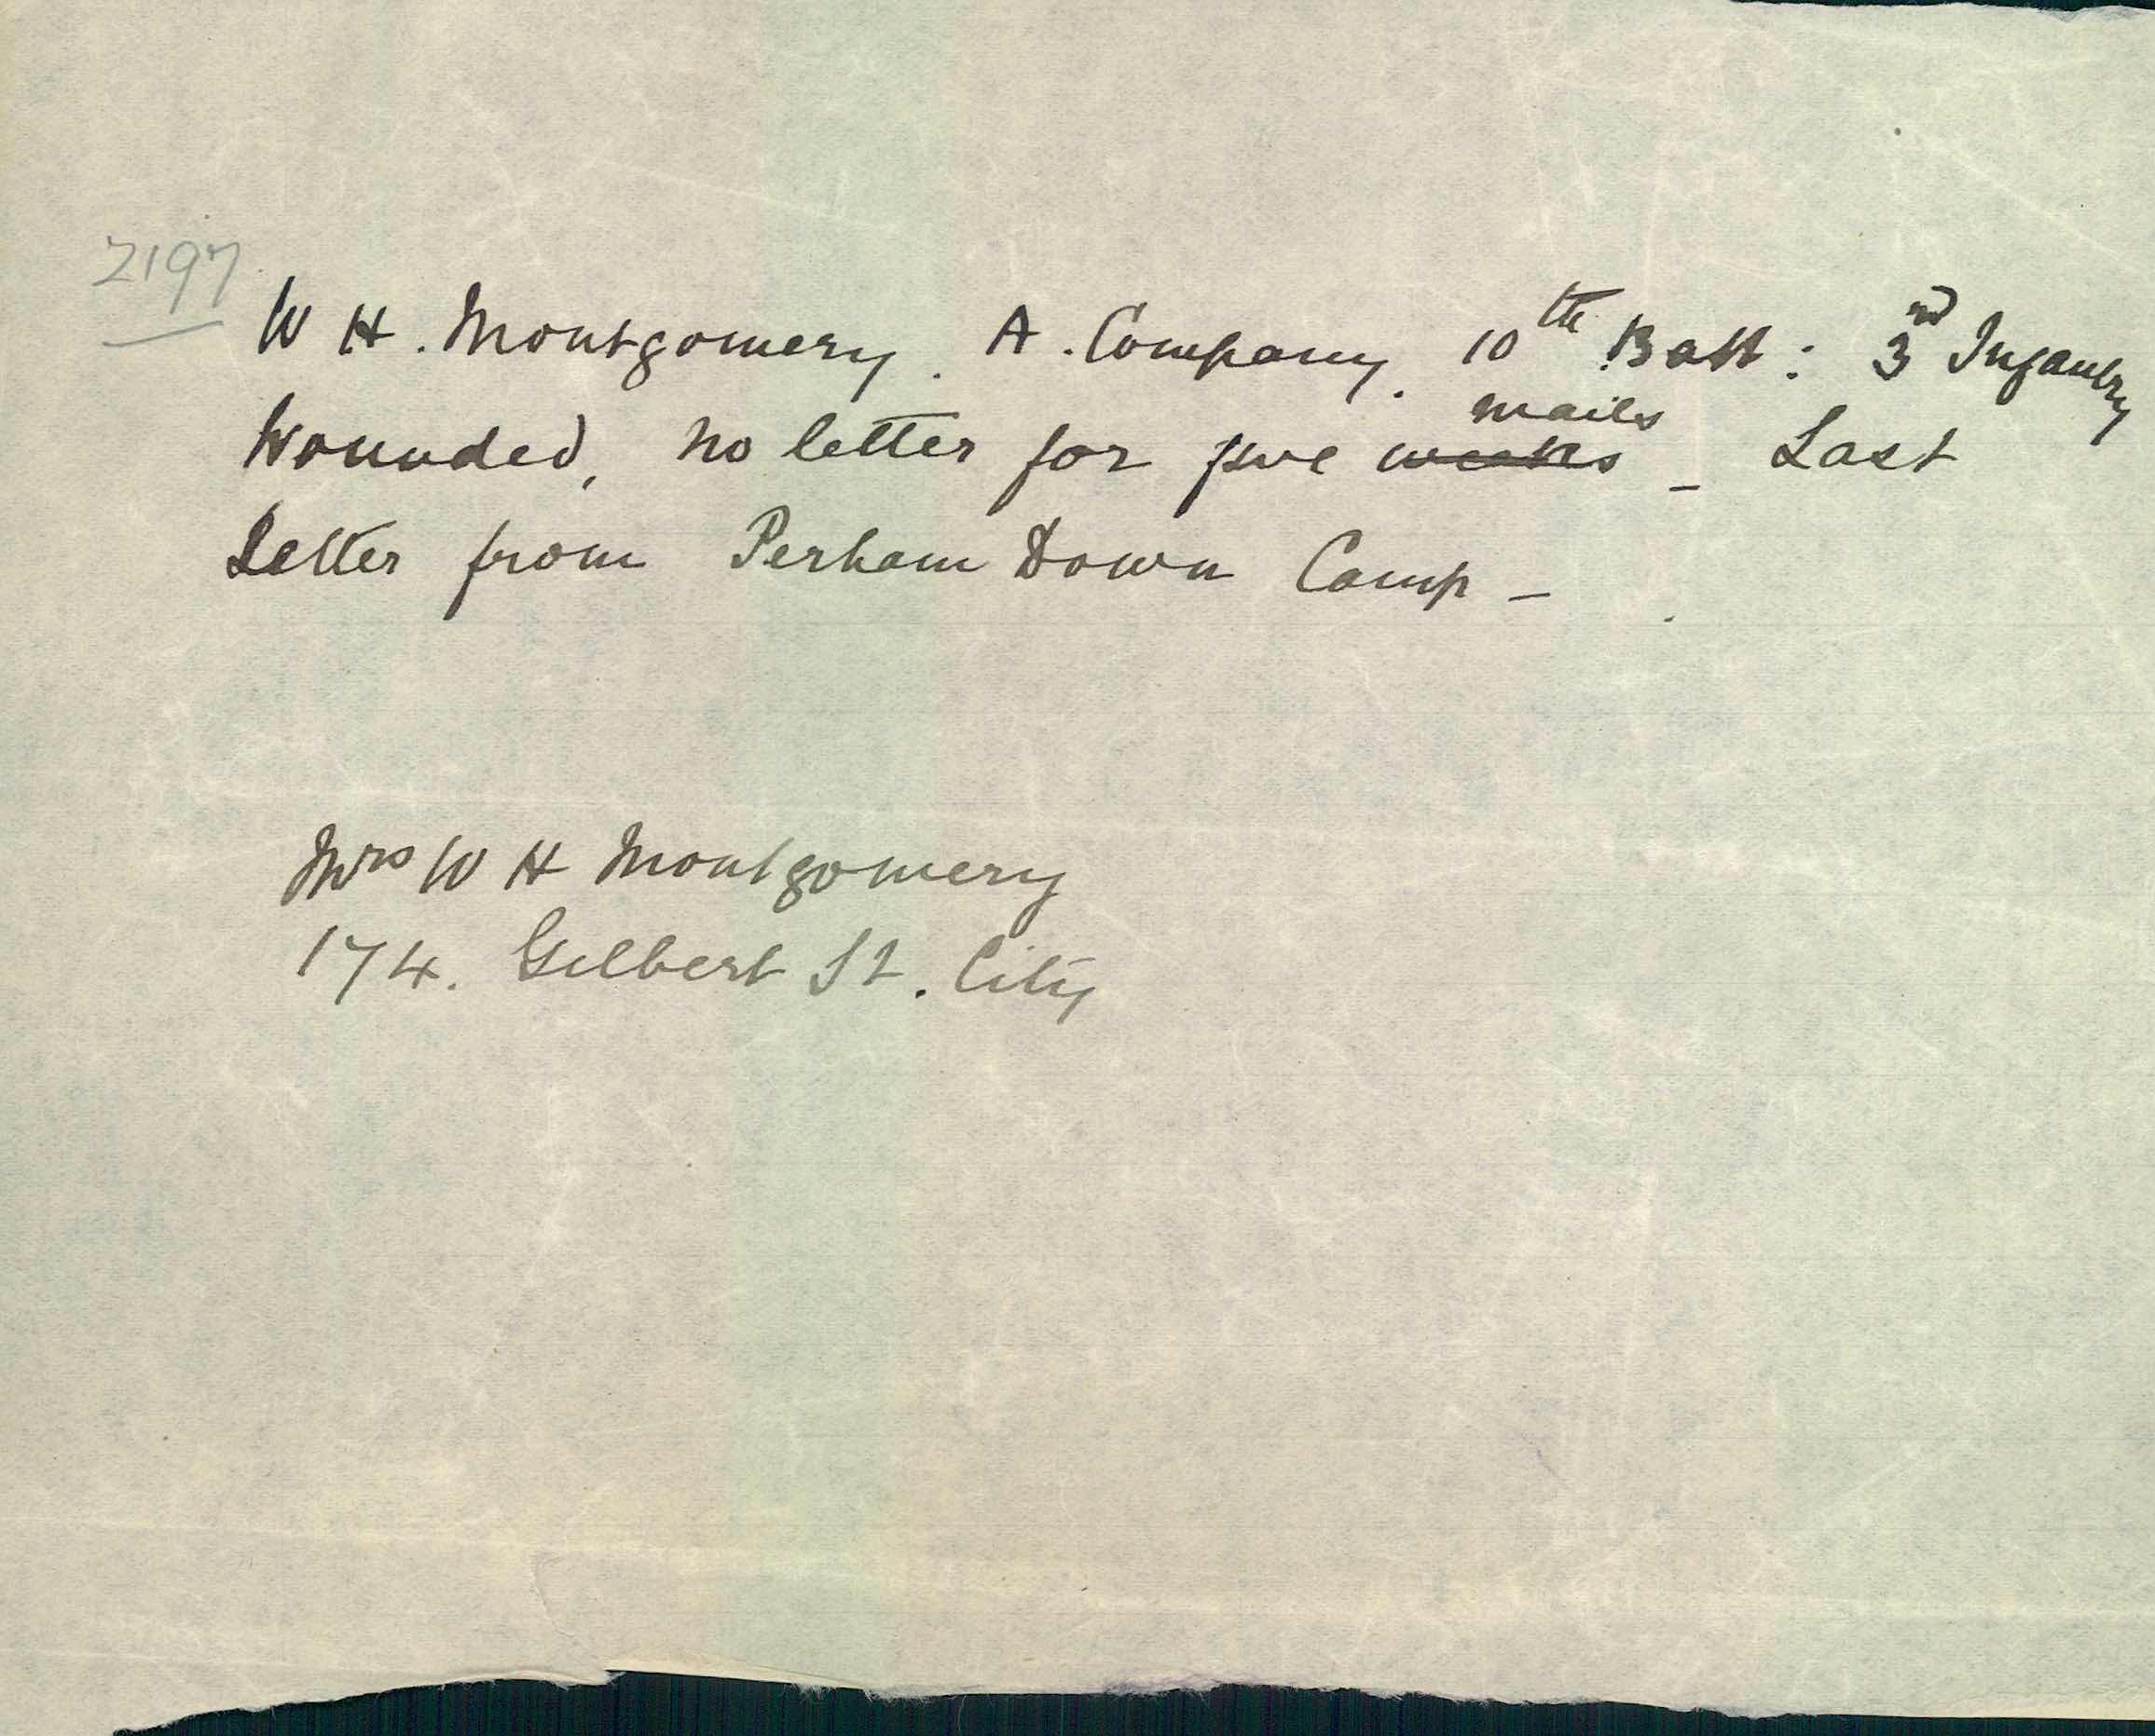 2197
W H. Montgomery. A. Company. 10th Batt: 3rd Infantry
Wounded, no letter for five weeks mails - Last
Letter from Perham Down Camp -
Mrs W H Montgomery
174. Gilbert St. City